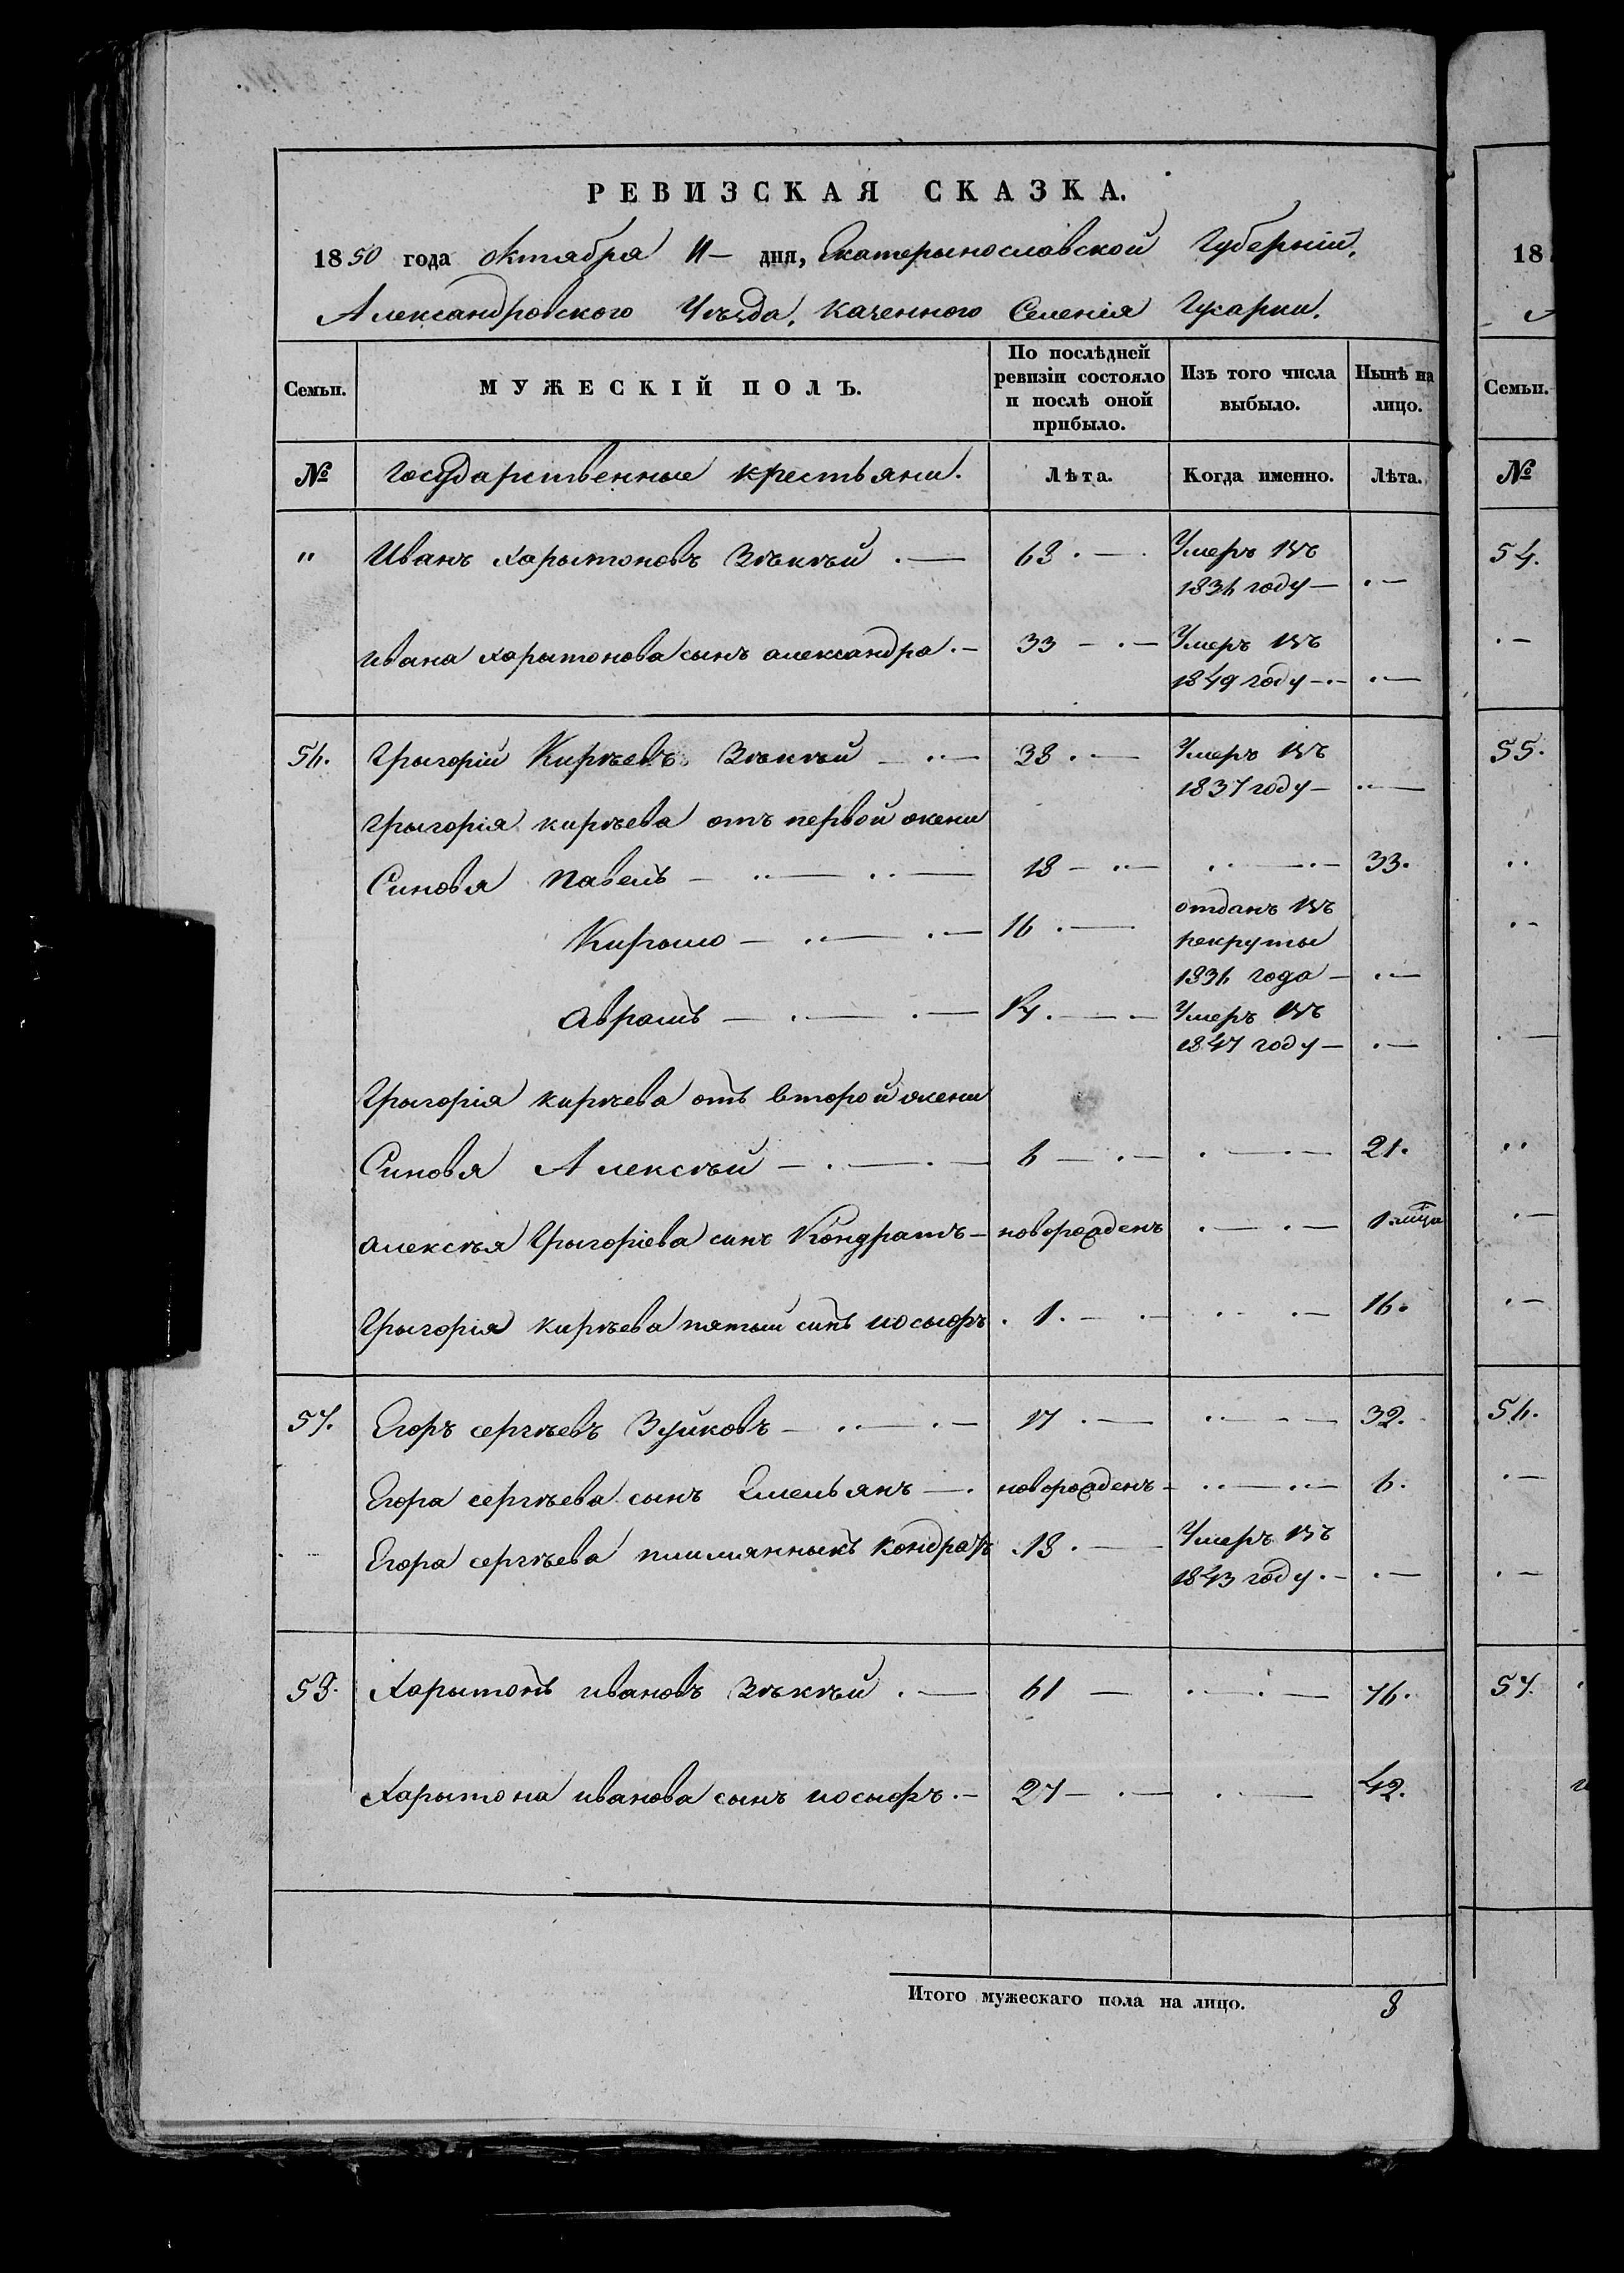 РЕВИЗСКАЯ СКАЗКА.
1850 года октября 11 – дня, Екатерынославской Губерній,
Александровского Уѣзда, Казенного Селенія Гусарки.
Семьи.
МУЖЕСКІЙ ПОЛЪ.
По послѣдней ревизіи состояло и послѣ оной прибыло.
Изъ того числа выбыло.
Нынѣ на лицо.
№ Государственные крестьяни. Лѣта. Когда именно. Лѣта.
" Иванъ Харытоновъ 63. Умеръ въ
1836 году —
ивана харытонова сынъ александра. – 33 Умеръ въ
1849 году
56. Грыгорій Кирѣевъ 38. Умеръ въ
1837 году —
Грыгорія кирѣева отъ первой жени
Синовя Павелъ 18 33.
Кирыло 16. отданъ въ
рекруты
1836 года —
Аврамъ 14. Умеръ въ
1847 году —
Грыгорія кирѣева отъ второй жени
Синовя Алексѣй 6 21.
алексѣя Грыгоріева синъ Кондратъ – новорожденъ 1 мца
Грыгорія кирѣева пятый синъ иосыфъ. 1. 16.
57. Егоръ сергѣевъ Зуйковъ 17 32.
Егора сергѣева сынъ Емельянъ новорожденъ 6.
Егора сергѣева племянныкъ Кондратъ 13. Умеръ въ
1843 году.
58. Харытонъ ивановъ 61 76.
Харытона иванова сынъ иосыфъ. – 27 42.
Итого мужескаго пола на лицо. 8
18
Семьи.
№
54.
55.
56.
57.